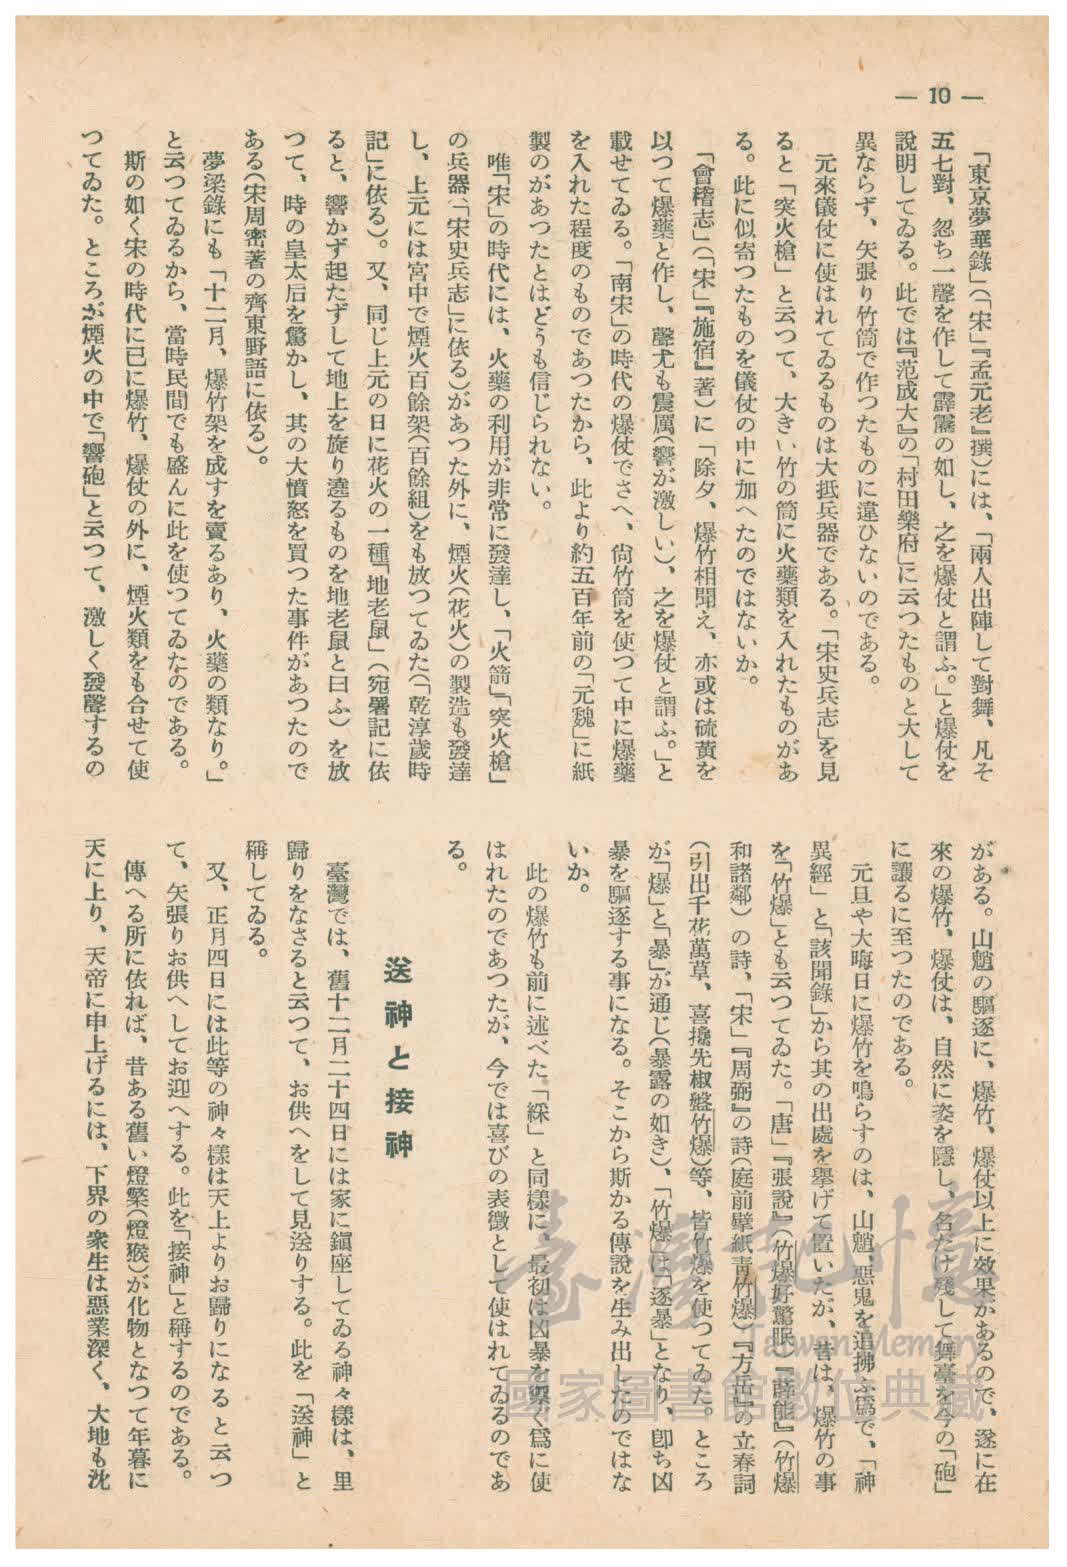 — 10 —
「東京夢華錄」（「宋」『孟元老』撰）には、「兩人出陣して對舞、凡そ
五七對、忽ち一聲を作して霹靂の如し、之を爆仗と謂ふ。」と爆仗を
說明してゐる。此では『范成大』の「村田樂府」に云つたものと大して
異ならず、矢張り竹筒で作つたものに違ひないのである。
元來儀仗に使はれてゐるものは大抵兵器である。「宋史兵志」を見
ると「突火槍」と云つて、大きい竹の筒に火藥類を入れたものがあ
る。此に似寄つたものを儀仗の中に加へたのではないか。
「會稽志」（「宋」『施宿』著）に「除夕、爆竹相聞え、亦或は硫黃を
以つて爆藥と作し、聲尤も震厲（響が激しい）、之を爆仗と謂ふ。」と
載せてゐる。「南宋」の時代の爆仗でさへ、尙竹筒を使つて中に爆藥
を入れた程度のものであつたから、此より約五百年前の「元魏」に紙
製のがあつたとはどうも信じられない。
唯「宋」の時代には、火藥の利用が非常に發達し、「火箭」「突火槍」
の兵器、「宋史兵志」に依る）があつた外に、煙火（花火）の製造も發達
し、上元には宮中で煙火百餘架（百餘組）をも放つてゐた（「乾淳歲時
記」に依る）。又、同じ上元の日に花火の一種「地老鼠」（宛署記に依
ると、響かず起たずして地上を旋り遶るものを地老鼠と曰ふ）を放
つて、時の皇太后を驚かし、其の大憤怒を買つた事件があつたので
ある（宋周密著の齊東野語に依る）。
夢梁錄にも「十二月、爆竹架を成すを賣るあり、火藥の類なり。」
と云つてゐるから、當時民間でも盛んに此を使つてゐたのである。
斯の如く宋の時代に已に爆竹、爆仗の外に、煙火類をも合せて使
つてゐた。ところが煙火の中で「響砲」と云つて、激しく發聲するの
がある。山魈の驅逐に、爆竹、爆仗以上に效果があるので、遂に在
來の爆竹、爆仗は、自然に姿を隱し、名だけ殘して舞臺を今の「砲」
に讓るに至つたのである。
元旦や大晦日に爆竹を鳴らすのは、山魈、惡鬼を追拂ふ爲で、「神
異經」と「該聞錄」から其の出處を擧げて置いたが、昔は、爆竹の事
を「竹爆」とも云つてゐた。「唐」『張說』（竹爆好驚眠『薛能』（竹爆
和諸鄰）の詩、「宋」『周弼』の詩（庭前擘紙靑竹爆）『方岳』の立春詞
（引出千花萬草、喜攙先椒盤竹爆）等、皆竹爆を使つてゐた。ところ
が「爆」と「暴」が通じ（暴露の如き）、「竹爆」は「逐暴」となり、卽ち凶
暴を驅逐する事になる。そこから斯かる傳說を生み出したのではな
いか。
此の爆竹も前に述べた「綵」と同樣に、最初は凶暴を禦ぐ爲に使
はれたのであつたが、今では喜びの表徵として使はれてゐるのであ
る。
送神と接神
臺灣では、舊十二月二十四日には家に鎭座してゐる神々樣は、里
歸りをなさると云つて、お供へをして見送りする。此を「送神」と
稱してゐる。
又、正月四日には此等の神々樣は天上よりお歸りになると云つ
て、矢張りお供へしてお迎へする。此を「接神」と稱するのである。
傳へる所に依れば、昔ある舊い燈檠（燈猴）が化物となつて年暮に
天に上り、天帝に申上げるには、下界の衆生は惡業深く、大地も沈
臺灣記憶
Taiwan Memory
國家圖書館數位典藏